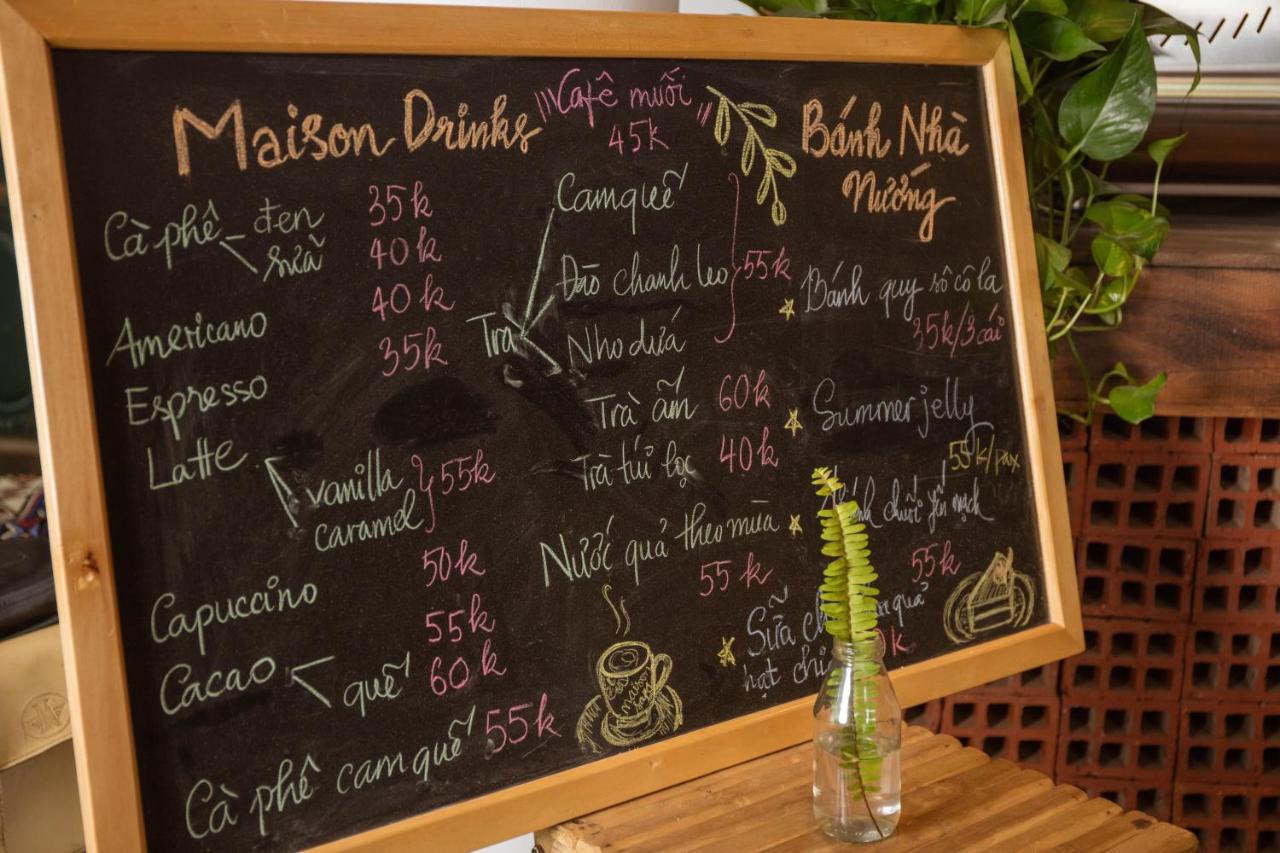 Maison Drinks
Cà phê đen 35k
sữa 40k
Americano 40k
Espresso 35k
Latte
vanilla
caramel 55k
Capuccino 50k
Cacao 55k
quế 60k
Cà phê cam quế 55k
"Cafê muối"
45k
Trà
Cam quế
Đào chanh leo 55k
Nho dứa
Trà ấm 60k
Trà túi lọc 40k
Nước quả theo mùa
55k
maison
Bánh Nhà
Nướng
Bánh quy sô cô la
35k/3 cái
Summer jelly
55k/pax
chuối yến mạch
55k
Sữa quả
hạt k